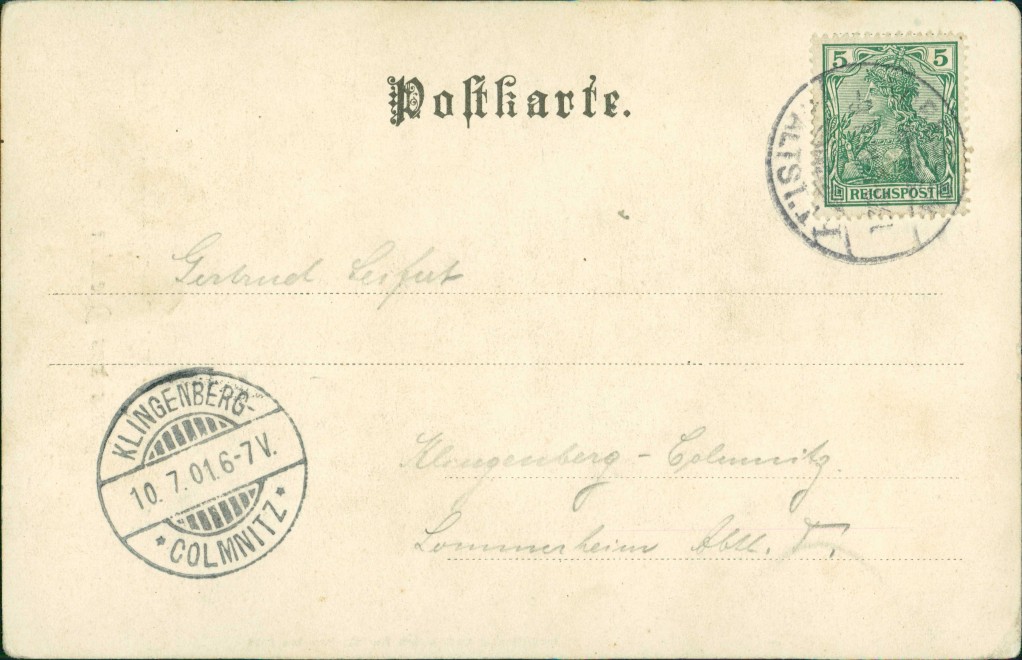 Postkarte.
5 5
REICHSPOST
Gertrud Seifert
KLINGENBERG-
10. 7. 01. 6-7 V.
* COLMNITZ *
Klingenberg - Colmnitz
Sommerheim Abtl.